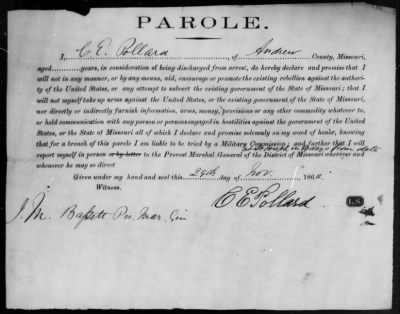 PAROLE.
I, C. E. Pollard of Andrew County, Missouri,
aged years, in consideration of being discharged from arrest, do hereby declare and promise that I
will not in any manner, or by any means, aid, encourage or promote the existing rebellion against the authori-
ty of the United States, or any attempt to subvert the existing government of the State of Missouri; that I
will not myself take up arms against the United States, or the existing government of the State of Missouri,
nor directly or indirectly furnish information, arms, money, provisions or any other commodity whatever to,
or hold communication with any person or persons engaged in hostilities against the government of the United
States, or the State of Missouri all of which I declare and promise solemnly on my word of honor, knowing
that for a breach of this parole I am liable to be tried by a Military Commission; and further that I will
days from date
report myself in person or by letter to the Provost Marshal General of the District of Missouri wherever and
whenever he may so direct
Given under my hand and seal this 29th day of Nov. 186
Witness.
C E Pollard L.S.
J. M. Bassett Pro. Mar. Gen